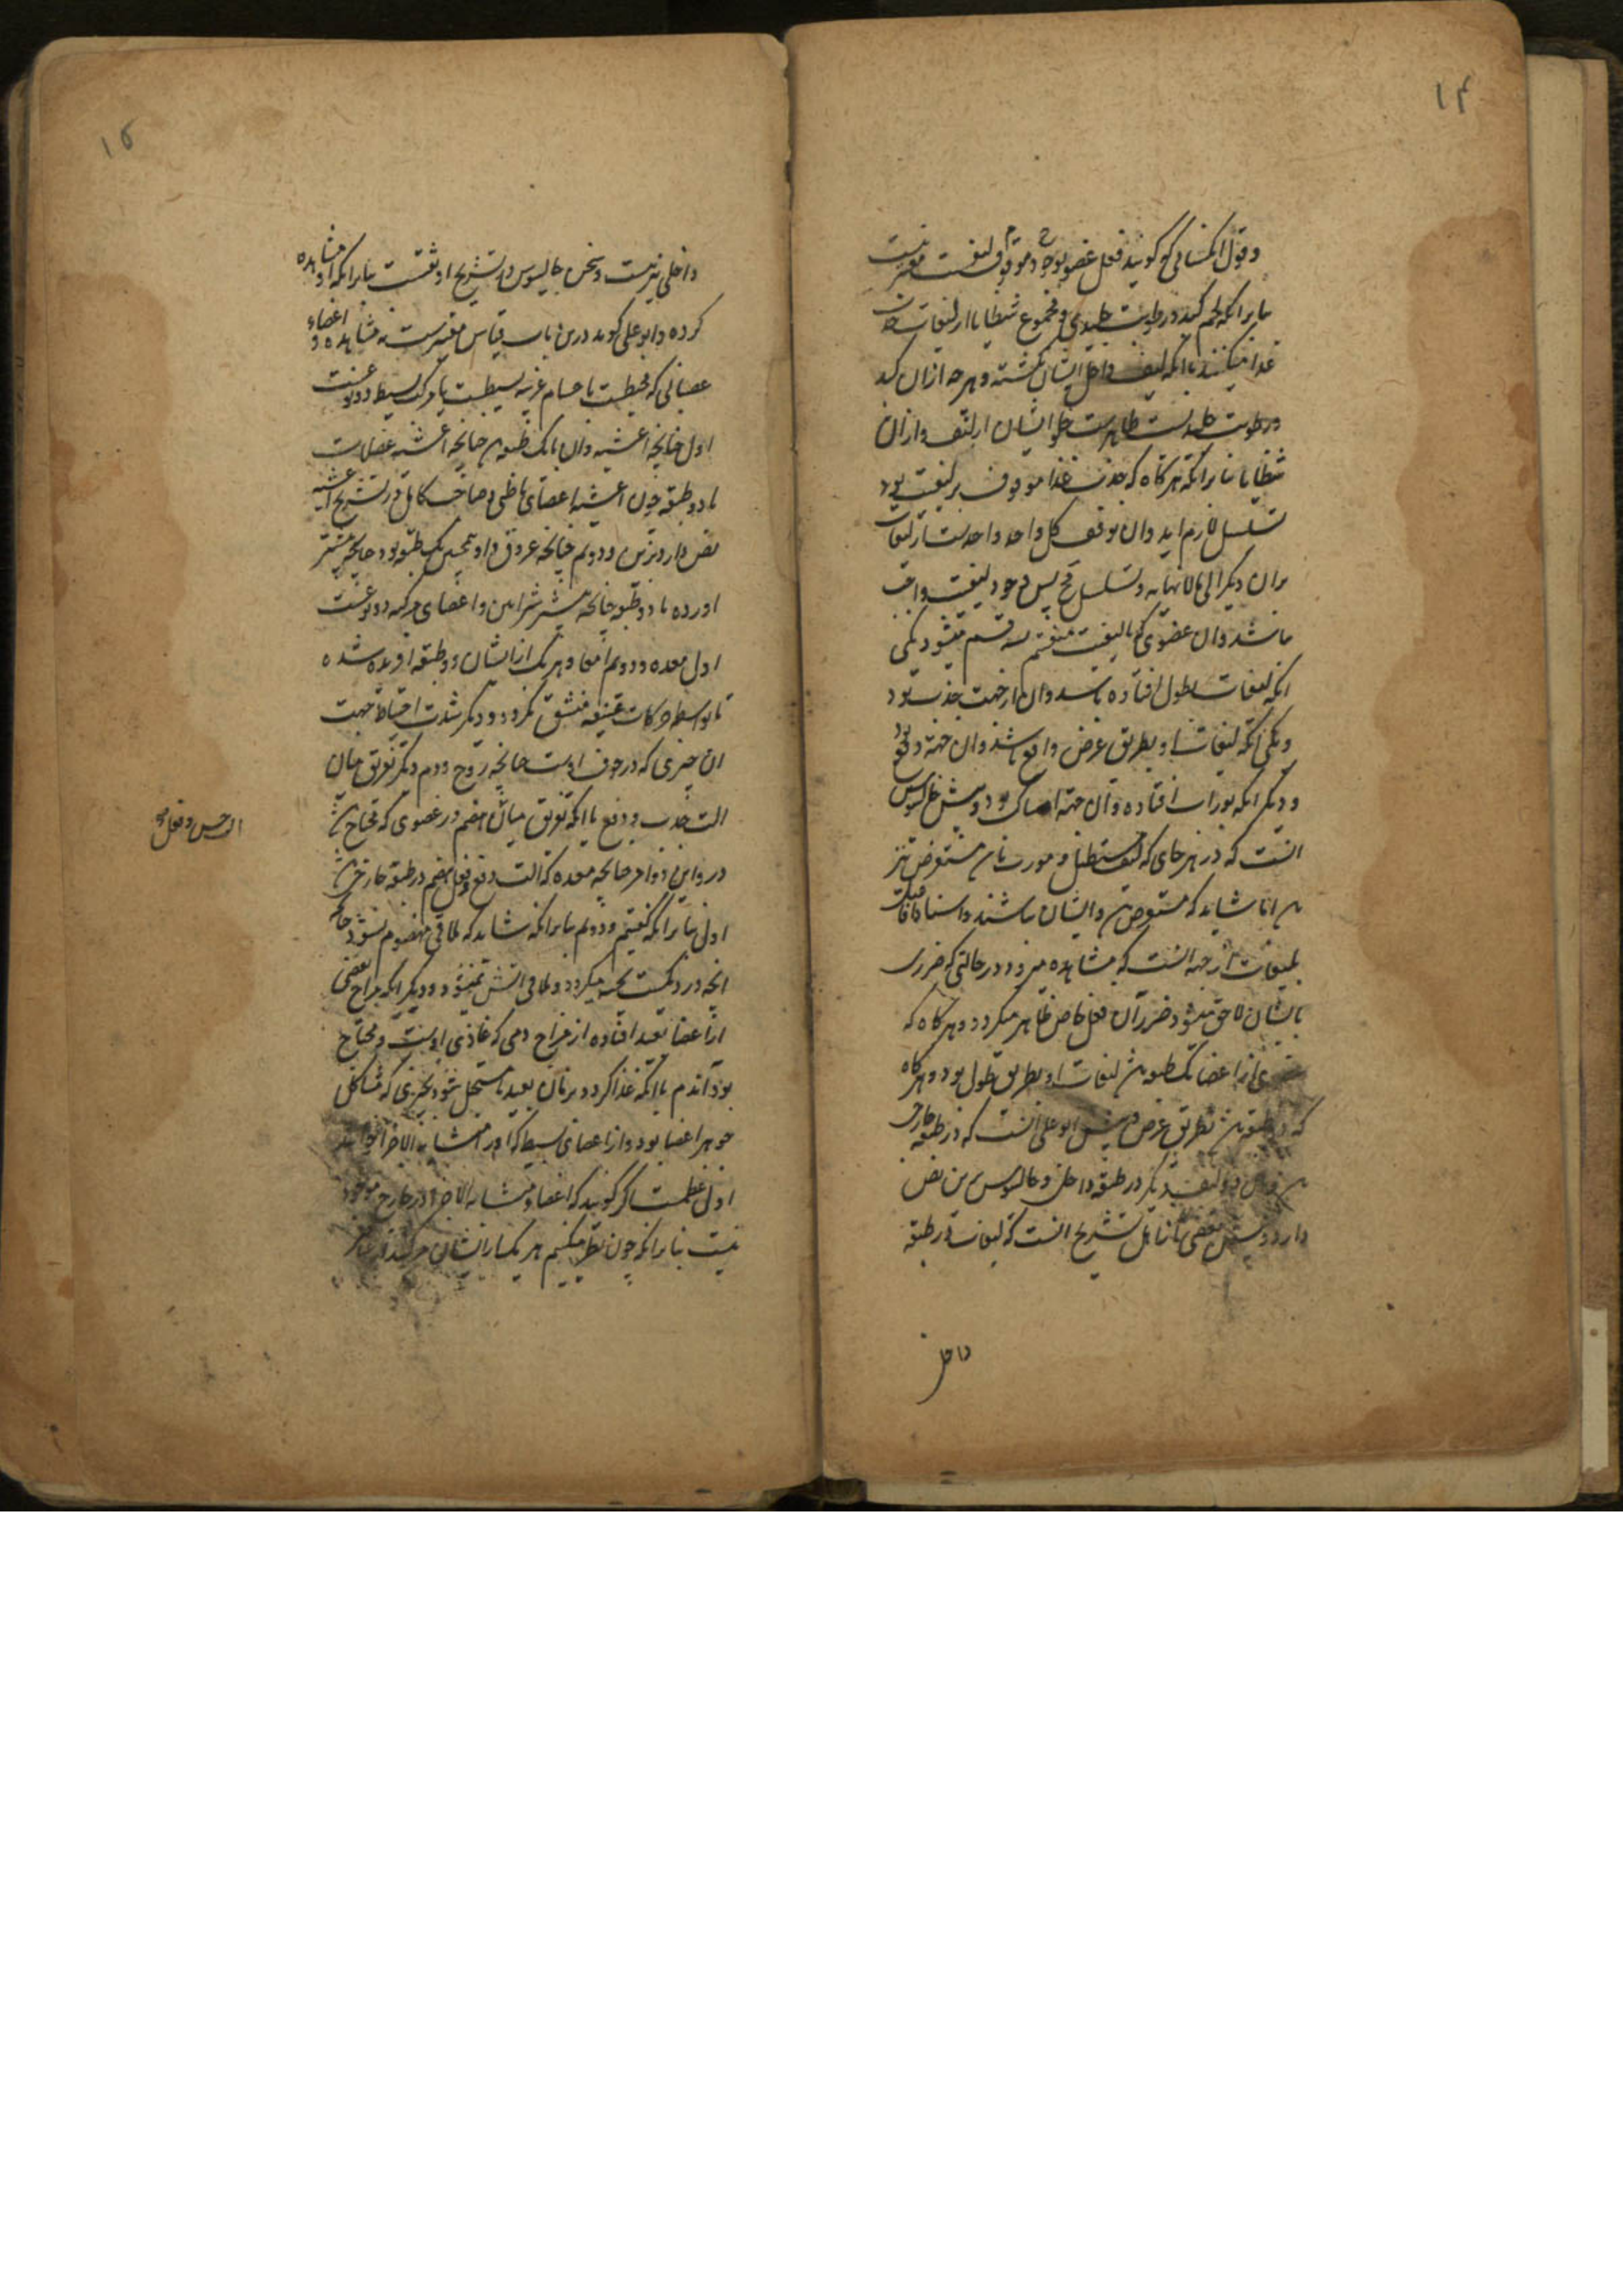 ۱۴
وقول انکسانی که کویند فعل عضو بوجود موقوف لیفست معتبر نیست
بنابرانکه لحم کبد و رطوبت جلیدی و مجموع شظایا از لیفات جذب
غذا میکنند باانکه لیف داخل ایشان نکشته و هرچه ازان کبد
ورطوبت جلیدیست ظاهرست خلو ایشان از لیف وازان
شظایا بنابرانکه هرکاه که جذب غذا موقوف بر لیفیت بود
تسلسل لازم اید وان توقف کل واحد واحدست از لیفات
بران دیکر الی مالانهایه وتسلسل مح پس وجود لیفیت واجب
باشد وان عضوی که بالیفیت منقسم بسه قسم میشود یکی
انکه لیفات بطول افتاده باشد وان از جهت جذب بود
ویکی انکه لیفات او بطریق عرض واقع باشد وان جهة دفع بود
ودیکر انکه بوراب افتاده وان جهة امساک بود وپیش جالینوس
انست که در هر جای که لیف مستطیل و مورب باشد مستعرض نیز
باشد اما شاید که مستعرض باشد وایشان نباشند واسناد افعال
بلیفات از جهة انست که مشاهده میرود در حالتی که ضرری
بایشان لاحق میشود ضرر آن فعل خاص ظاهر میکردد و هرکاه که
عضوی از اعضا یک طبقه باشد لیفات او بطریق طول بود وهرکاه
که دو طبقه باشد بطریق عرض وپیش ابوعلی انست که در طبقه خارجی
باشد وان دو لیف دیکر در طبقه داخل وجالینوس برین نص
دارد وپیش بعضی از اهل تشریح انست که لیفات در طبقه
داخل
۱۵
داخلی نیز نیست وسخن جالینوس در تشریح اوثقست بنابرانکه او مشاهده
کرده وابوعلی کوید درین باب قیاس معتبر نیست نه مشاهده و اعضاء
عصبانی که محیطست باجسام غریبه بسیطست یا مرکب بسیط دو نوعست
اول چنانچه اغشیه وان یا یک طبقه باشد چنانچه اغشیه عضلات
یا دو طبقه چون اغشیه اعضای باطنی وصاحب کامل در تشریح اغشیه
نص دارد برین ودوم چنانچه عروق واو همچنین یک طبقه بود چنانچه بیشتر
اورده یا دو طبقه چنانچه بیشتر شرایین واعضای مرکبه دو نوعست
اول معده ودوم امعا وهریک ازایشان دو طبقه افریده شده
تا بواسطه حرکات عنیفه منشق نکردد ودیکر شدت احتیاط جهت
ان چیزی که در جوف اوست چنانچه روح ودم ودیکر تفریق میان
الت جذب ودفع باانکه تفریق میان هضم در عضوی که محتاج باشد
الت حس وفعل
در واین دو امر چنانچه معده که الت دفع وفعل هضم در طبقه خارجی باشد
اول بنابرانکه کفتیم ودوم بنابرانکه شاید که ملاقی مهضوم نشود چنانچه
انچه در دیکست پخته میکردد وملاقی اتش نمیشود ودیکر انکه مزاج بعضی
از اعضا بعید افتاده از مزاج دمی که غاذی اوست ومحتاج
بود آندم باانکه غذا کردد بزمان بعید تا مستحیل شود بچیزی که مشاکل
جوهر اعضا بود واز اعضای بسیط که اورا متشابه الاجزا خوانند
اول عظمست اکر کویند که اعضاء متشابه الاجزا در خارج موجود
نیست بنابرانکه چون نظر میکنیم هریک از ایشان مرکبند